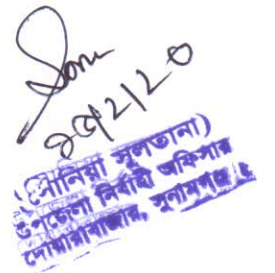 ২৫/২/২০
(সোনিয়া সুলতানা)
উপজেলা নির্বাহী অফিসার
দোয়ারাবাজার, সুনামগঞ্জ